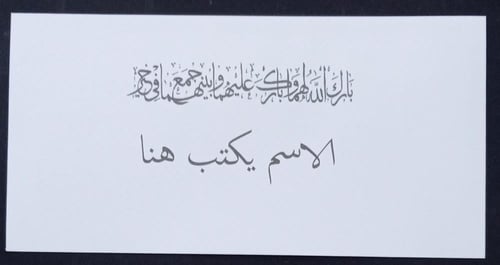 بارك الله لهما وبارك عليهما وجمع بينهما في خير
الاسم يكتب هنا